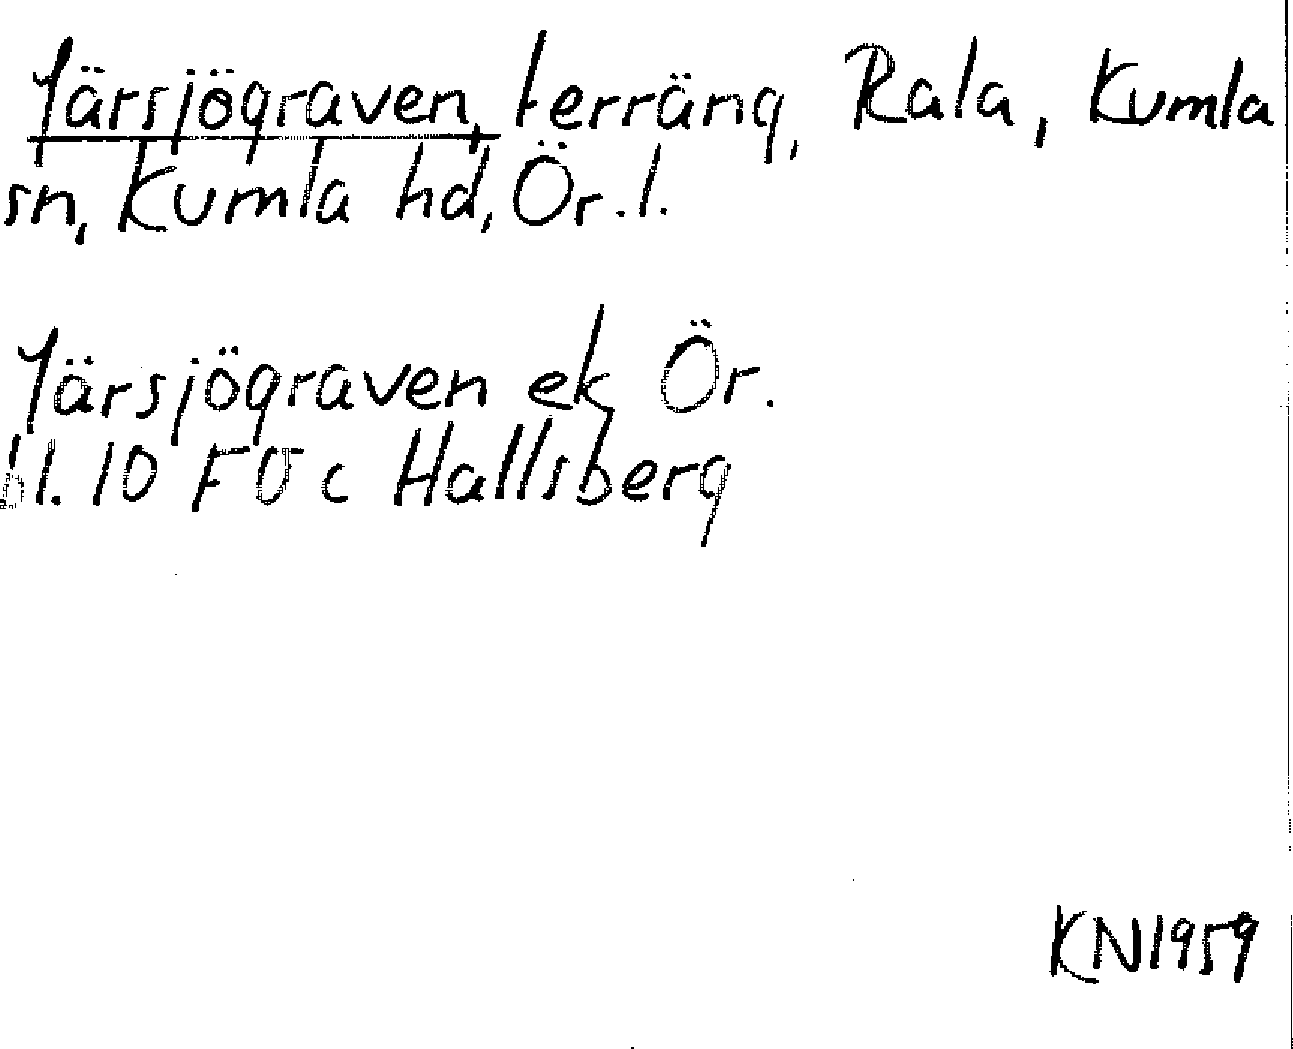 Järsjögraven, terräng, Rala, Kumla
sn, Kumla hd, Ör. l.
Järsjögraven ek Ör.
bl. 10 FV c Hallsberg
KN1959